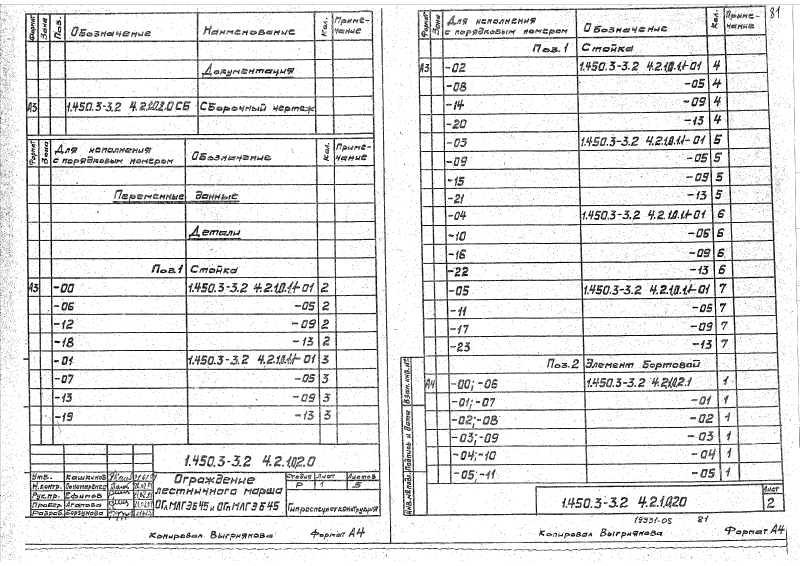 Формат Зона Поз. Обозначение Наименование Кол. Приме-чание
Документация
А3 1.450.3-3.2 4.2.1.02.0 СБ Сборочный чертеж
Формат Зона Для исполнения с порядковым номером Обозначение Кол. Приме-чание
Переменные данные
Детали
Поз.1 Стойка
А3 -00 1.450.3-3.2 4.2.1.0.1.1-01 2
-06 -05 2
-12 -09 2
-18 -13 2
-01 1.450.3-3.2 4.2.1.0.1.1-01 3
-07 -05 3
-13 -09 3
-19 -13 3
1.450.3-3.2 4.2.1.02.0
Утв. Кашкинов
Н.контр. Пономаренко
Рук.пр. Ефимов
Провер. Агапова
Разраб. Борзунова
Ограждение
лестничного марша
ОГлМЛГЭБ45 и ОГпМЛГЭБ45
Стадия Лист Листов
Р 1 5
Гипроспецлегконструкция
Копировал Выгриянова Формат А4
81
Формат Зона Для исполнения с порядковым номером Обозначение Кол. Приме-чание
Поз.1 Стойка
А3 -02 1.450.3-3.2 4.2.1.0.1.1-01 4
-08 -05 4
-14 -09 4
-20 -13 4
-03 1.450.3-3.2 4.2.1.0.1.1-01 5
-09 -05 5
-15 -09 5
-21 -13 5
-04 1.450.3-3.2 4.2.1.0.1.1-01 6
-10 -05 6
-16 -09 6
-22 -13 6
-05 1.450.3-3.2 4.2.1.0.1.1-01 7
-11 -05 7
-17 -09 7
-23 -13 7
Поз.2 Элемент бортовой
А4 -00; -06 1.450.3-3.2 4.2.1.02.1 1
-01; -07 -01 1
-02; -08 -02 1
-03; -09 -03 1
-04; -10 -04 1
-05; -11 -05 1
Инв.№ подл. Подпись и дата Взам.инв.№
1.450.3-3.2 4.2.1.020
Лист
2
19931-05 81
Копировал Выгриянова Формат А4